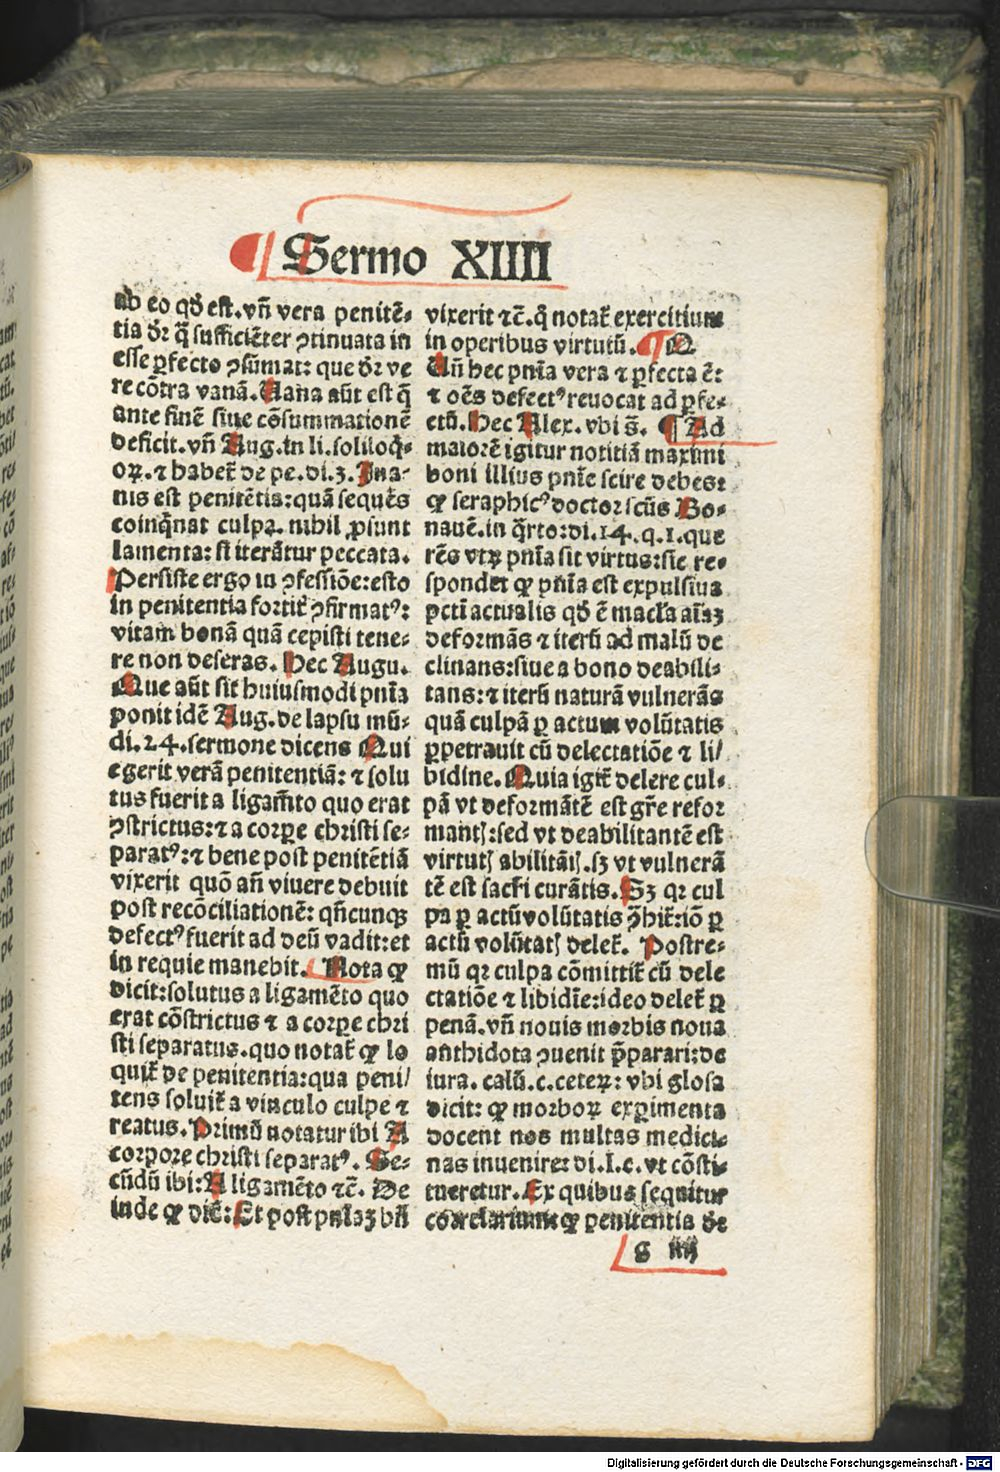 Sermo XIIII
ab eo qđ est. vñ vera penitē-
tia dr̄ q̄ sufficiēter ꝯtinuata in
esse ꝑfecto ꝯsūmat: que dr̄ ve
re cōtra vanā. Uana aūt est q̄
ante finē siue cōsummationē
deficit. vñ Aug. in li. soliloq̄-
oꝝ. ⁊ habet̄ de pe. di. 3. Ina-
nis est penitētia: quā sequēs
coinq̄nat culpa. nihil ꝓsunt
lamenta: si iterātur peccata.
Persiste ergo in ꝯfessiōe: esto
in penitentia fortit̄ ꝯfirmatꝰ:
vitam bonā quā cepisti tene-
re non deseras. Hec Augu.
Que aūt sit huiusmodi pn̄ia
ponit idē Aug. de lapsu mū-
di. 24. sermone dicens Qui
egerit verā penitentiā: ⁊ solu
tus fuerit a ligam̄to quo erat
ꝯstrictus: ⁊ a corꝑe christi se-
paratꝰ: ⁊ bene post penitētiā
vixerit quō añ viuere debuit
post recōciliationē: qn̄cunqꝫ
defectꝰ fuerit ad deū vadit: et
in requie manebit. Nota ꝙ
dicit: solutus a ligamēto quo
erat cōstrictus ⁊ a corꝑe chri
sti separatus. quo notat̄ ꝙ lo
quit̄ de penitentia: qua peni/
tens soluit̄ a vinculo culpe ⁊
reatus. Primū notatur ibi A
corpore christi separatꝰ. Se-
cūdū ibi: A ligamēto ⁊c̄. De
inde ꝙ dic̄: Et post pn̄iaꝫ bn̄
vixerit ⁊c̄. q̄ notat̄ exercitium
in operibus virtutū. ¶ Q
Uñ hec pn̄ia vera ⁊ ꝑfecta ē:
⁊ oēs defectꝰ reuocat ad ꝑfe-
ctū. Hec Alex. vbi s̄. ¶ Ad
maiorē igitur notitiā maximi
boni illius pn̄ie scire debes:
ꝙ seraphicꝰ doctor scūs Bo-
nauē. in q̄rto: di. 14. q. 1. que
rēs vtꝝ pn̄ia sit virtus: sic re-
spondet ꝙ pn̄ia est expulsiua
pcti actualis qđ ē macl̄a aīaꝫ
deformās ⁊ iterū ad malū de
clinans: siue a bono deabili-
tans: ⁊ iterū naturā vulnerās
quā culpā ꝑ actum volūtatis
ꝑpetrauit cū delectatiōe ⁊ li/
bidine. Quia igit̄ delere cul-
pā vt deformātē est gr̄e refor
mantꝭ: sed vt deabilitantē est
virtutꝭ abilitātꝭ. sꝫ vt vulnerā
tē est sacr̄i curātis. Sꝫ qꝛ cul
pa ꝑ actū volūtatis ꝯ̄hit̄: iō ꝑ
actū volūtatꝭ delet̄. Postre-
mū qꝛ culpa cōmittit̄ cū dele
ctatiōe ⁊ libidīe: ideo delet̄ ꝑ
penā. vñ nouis morbis noua
anthidota ꝯuenit p̄parari: de
iura. calū. c. ceteꝝ: vbi glosa
dicit: ꝙ morboꝝ exꝑimenta
docent nos multas medici-
nas inuenire: di. I. c. vt cōsti-
tueretur. Ex quibus sequitur
correlarium ꝙ penitentia dr̄
g iiij
Digitalisierung gefördert durch die Deutsche Forschungsgemeinschaft - DFG